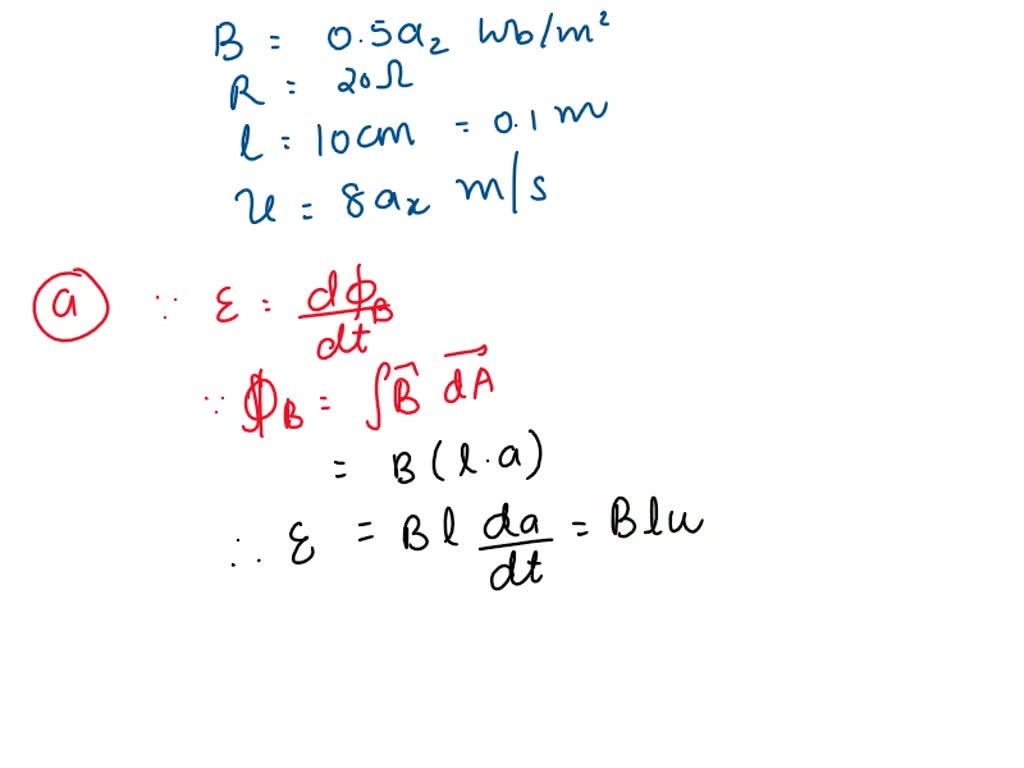 B = 0.5a₂ Wb/m²
R = 20Ω
l = 10cm = 0.1 m
u = 8aₓ m/s
ⓐ ∵ ε = dϕ_B/dt
∵ ϕ_B = ∫B⃗ dA⃗
= B(l.a)
∴ ε = Bl da/dt = Blu